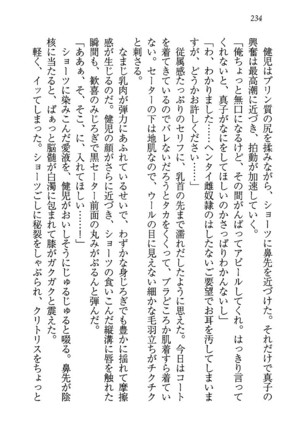 234
健児はプリン質の尻を揉みながら、ショーツに鼻先を近づけた。それだけで真子の
興奮は最高潮に近づき、拍動が加速していく。
「俺ちょっと無口になるけど、その間がんばってアピールしてくれ。はっきり言って
くれないと、真子がなにをしてほしいのかさっぱりわかんないし」
「わ、わかりました……ヘンタイ雌奴隷のはしたないご要望でお耳を汚してしまいま
すが、どうかお許しください……」
従属感たっぷりのセリフに、乳首の先まで濡れだしたように思えた。今日はコート
を着ているからバレないだろうとタカをくくって、ブラどころか肌着すら着ていない。
セーターの下は地肌なので、ウールの目に見えない細かな毛羽立ちがチクチク
と刺さる。
なまじ乳肉が弾力に富んでいるせいで、わずかな身じろぎでも豊かに揺れて摩擦
感が生じるのだ。健児の顔がさらに近づき、ショーツの食いこんだ縦溝に唇を触れた
瞬間も、歓喜のみじろぎで黒セーター前面の丸みがぶるんと弾んだ。
「ああぁ、そ、そこに、入れてほしい……！」
ショーツに染みこんだ愛液を、健児がおいしそうにじゅるじゅると啜る。鼻先が陰
核に当たると、ぱぁっと脳髄が白濁に包まれて膝がガクガクと震えた。
軽く、イッてしまった。ショーツごしに秘裂をしゃぶられ、クリトリスをちょっと